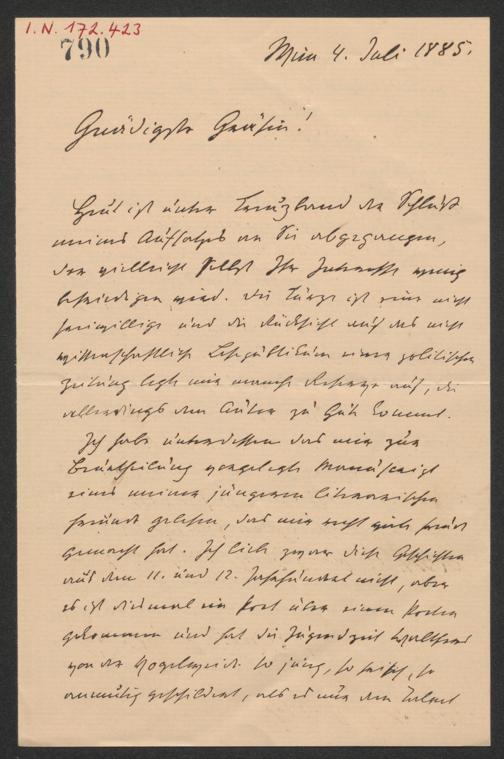 I. N. 172.423
790
Wien 4. Juli 1885.
Gnädigste Gräfin!
Heut ist unter Kreuzband der Schluß
meines Aufsatzes an Sie abgegangen,
der vielleicht selbst Ihr Interesse wenig
befriedigen wird. Die Kürze ist eine nicht
freiwillige und die Rücksicht auf das nicht
wissenschaftliche Lesepublikum einer politischen
Zeitung legte mir manche Reserve auf, die
allerdings dem Autor zu Gute kommt.
Ich habe unterdessen das mir zur
Beurtheilung vorgelegte Manuscript
eines meiner jüngeren literarischen
Freunde gelesen, das mir recht viele Freude
gemacht hat. Ich liebe zwar diese Geschichten
aus dem 11. und 12. Jahrhundert nicht, aber
es ist diesmal ein Poet über einen Poeten
gekommen und hat die Jugendzeit Walthers
von der Vogelweide so jung, so frisch, so
anmutig geschildert, als es nur dem Talent